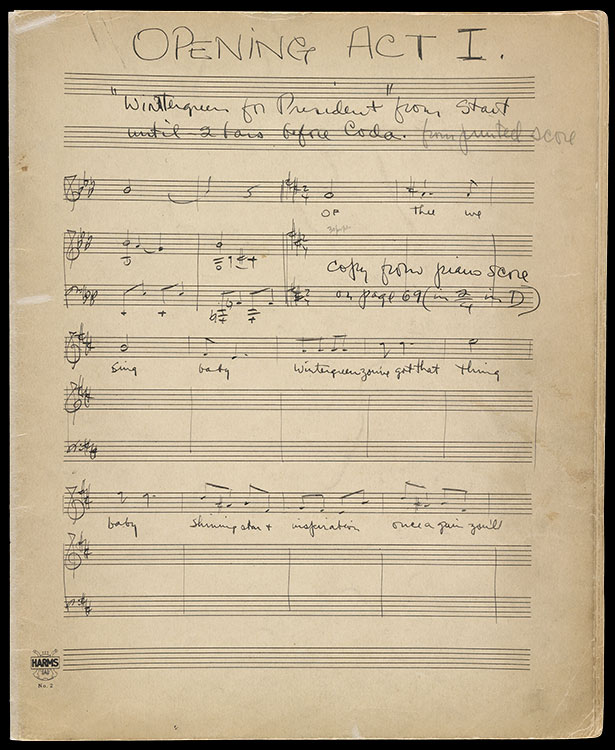 OPENING ACT I.
"Wintergreen for President" from Start
until 2 bars before Coda. from printed score
2/4
OF thee we
copy from piano score
on page 69 (in 2/4 in D)
Sing baby Wintergreen you've got that thing
baby Shining star + inspiration once again you'll
HARMS
No. 2